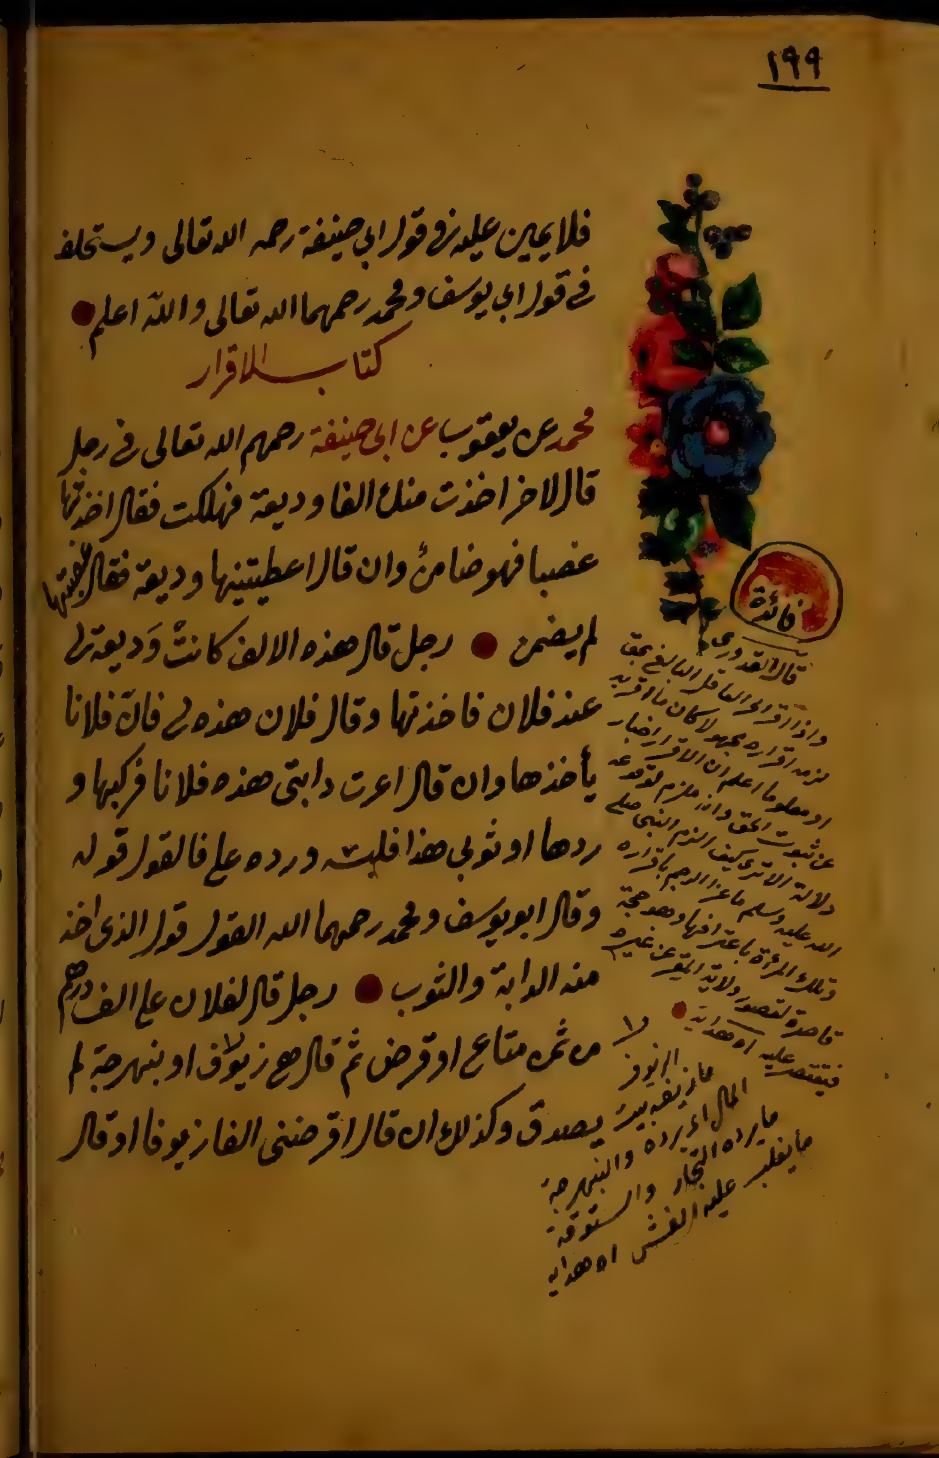 ١٩٩
فلا يمين عليه في قول ابي حنيفة رحمه الله تعالى ويستحلف
في قول ابي يوسف ومحمد رحمهما الله تعالى والله اعلم
كتاب الاقرار
محمد عن يعقوب عن ابي حنيفة رحمهم الله تعالى في رجل
قال لاخر اخذت منك الفا وديعة فهلكت فقال اخذتها
غصبا فهو ضامن وان قال اعطيتنيها وديعة فقال غصبتنيها
لم يضمن رجل قال هذه الالف كانت وديعة لي
عند فلان فاخذتها وقال فلان هذه لي فان فلانا
يأخذها وان قال اعرت دابتي هذه فلانا فركبها و
ردها او ثوبي هذا فلبسه ورده علي فالقول قوله
وقال ابو يوسف ومحمد رحمهما الله القول قول الذي اخذ
منه الدابة والثوب رجل قال لفلان علي الف درهم
من ثمن متاع او قرض ثم قال هي زيوف او بنهرجة لم
يصدق وكذلك ان قال اقرضني الفا زيوفا او قال
فائدة
قال القدوري
واذا اقر الحر العاقل البالغ بحق
لزمه اقراره مجهولا كان ما اقر به
او معلوما اعلم ان الاقرار اخبار
عن ثبوت الحق وانه ملزم لوقوعه
دلالة الا ترى كيف الزم النبي صلى
الله عليه وسلم ماعزا الرجم باقراره
وتلك المرأة باعترافها وهو حجة
قاصرة لقصور ولاية المقر عن غيره
فيقتصر عليه اه هداية
الزيوف
ما زيفه بيت
المال اي يرده والبنهرجة
ما يرده التجار والستوقة
ما يغلب عليه الغش اه هداية